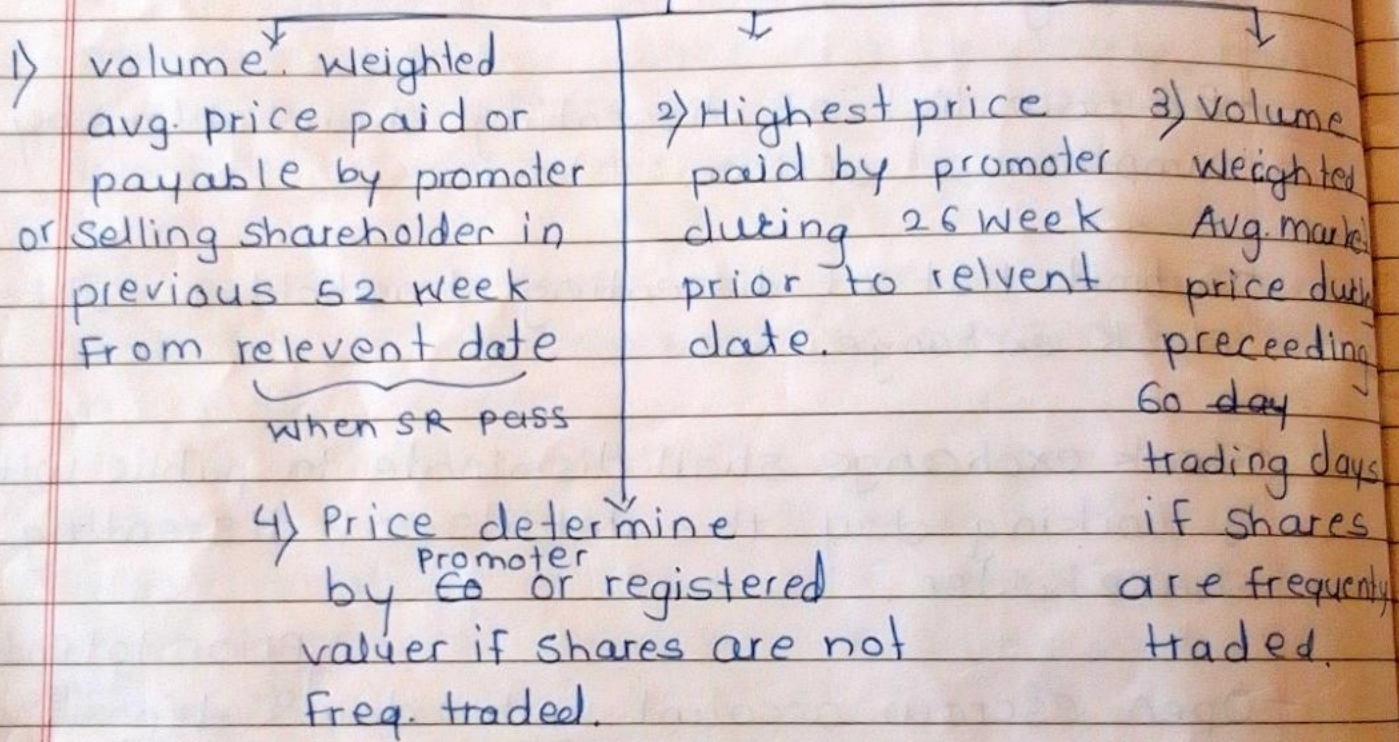 1) volume. Weighted
avg. price paid or
payable by promoter
or selling shareholder in
previous 52 week
From relevent date
when SR pass
2) Highest price
paid by promoter
during 26 week
prior to relvent
date.
3) volume
weighted
Avg. market
price
preceeding
60 day
trading days
if shares
are frequenty
traded.
4) Price determine
Promoter
by Co or registered
valuer if shares are not
freq. traded.